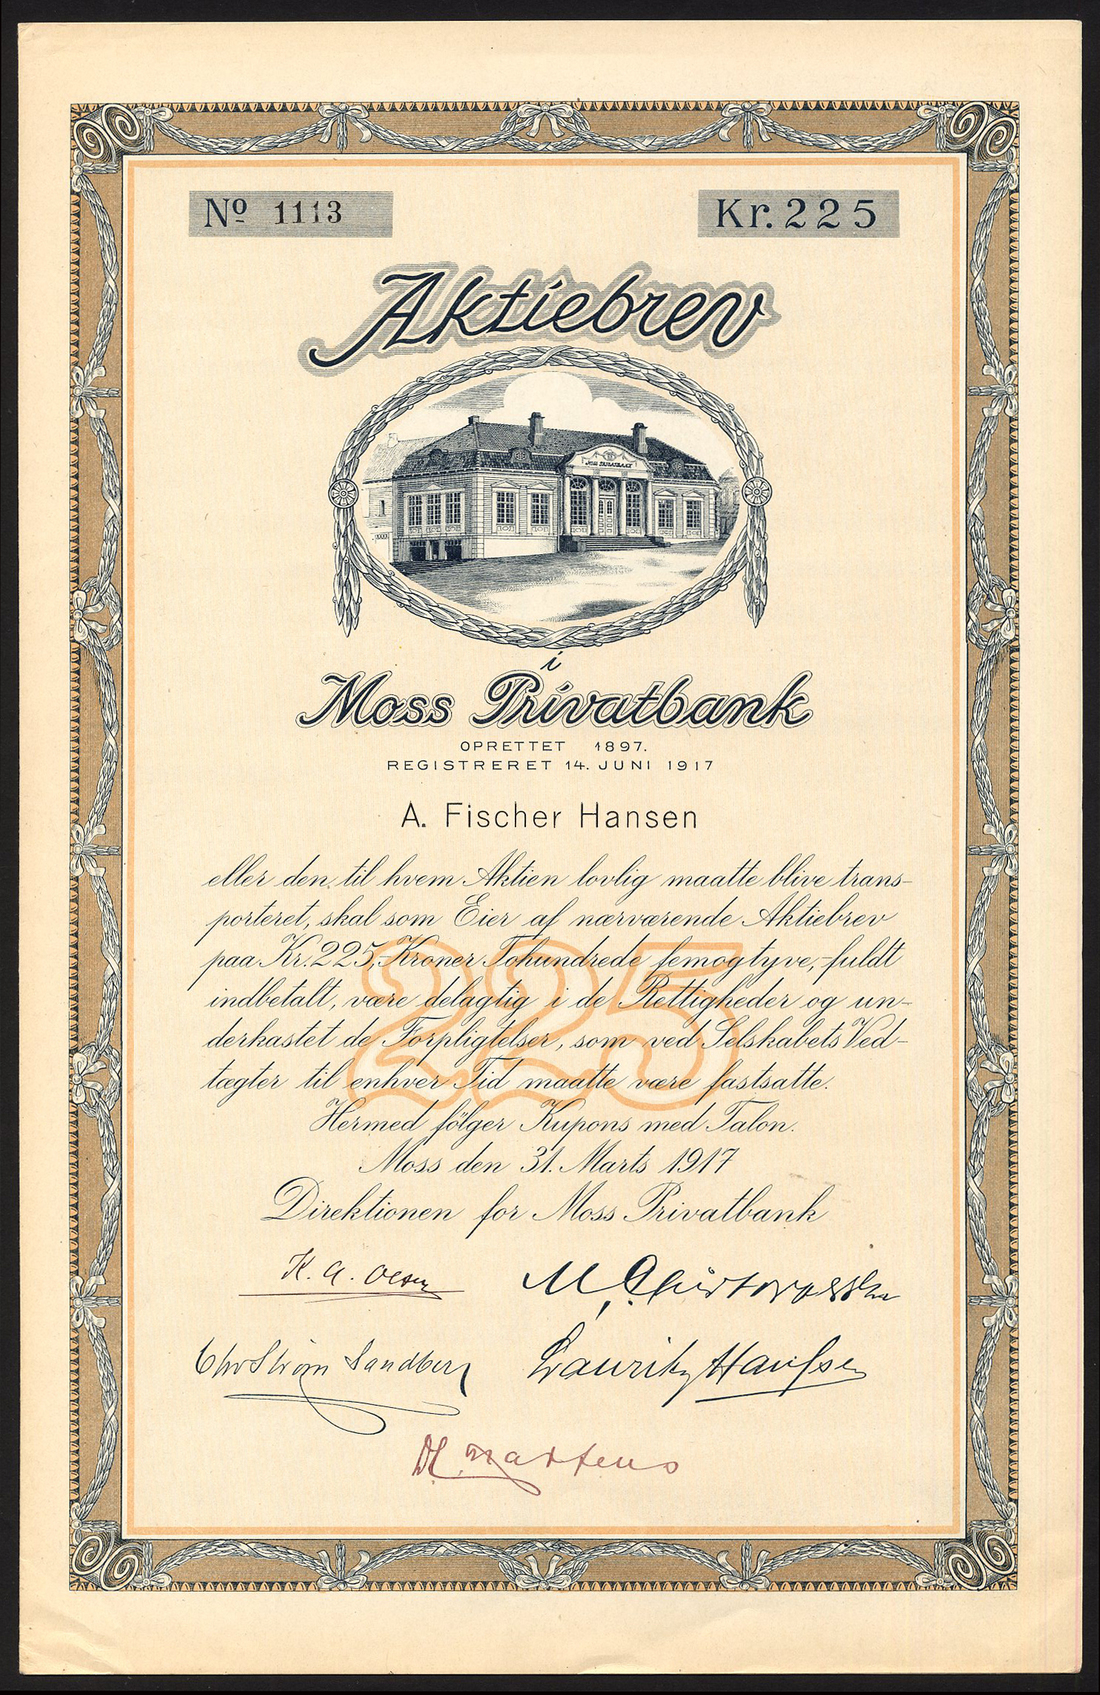 Nº 1113
Kr. 225
Aktiebrev
MOSS PRIVATBANK
i
Moss Privatbank
OPRETTET 1897.
REGISTRERET 14. JUNI 1917
A. Fischer Hansen
225
eller den, til hvem Aktien lovlig maatte blive trans-
porteret, skal som Eier af nærværende Aktiebrev
paa Kr. 225,- Kroner Tohundrede femogtyve,- fuldt
indbetalt, være delagtig i de Rettigheder og un-
derkastet de Forpligtelser, som ved Selskabets Ved-
tægter til enhver Tid maatte være fastsatte.
Hermed følger Kupons med Talon.
Moss den 31. Marts 1917
Direktionen for Moss Privatbank
K. A. Olsen
Chr Strøm Sandberg
Lauritz Hansen
Martens